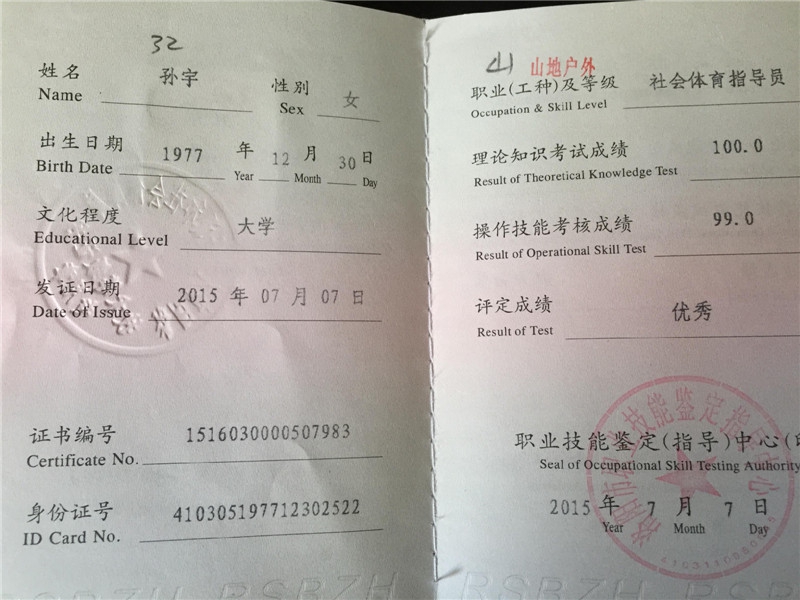 32
姓名 孙宇 性别 女
Name Sex
出生日期 1977 年 12 月 30 日
Birth Date Year Month Day
文化程度 大学
Educational Level
发证日期 2015 年 07 月 07 日
Date of Issue
证书编号 1516030000507983
Certificate No.
身份证号 410305197712302522
ID Card No.
RSBZH
山 山地户外
职业(工种)及等级 社会体育指导员
Occupation & Skill Level
理论知识考试成绩 100.0
Result of Theoretical Knowledge Test
操作技能考核成绩 99.0
Result of Operational Skill Test
评定成绩 优秀
Result of Test
职业技能鉴定(指导)中心(印
Seal of Occupational Skill Testing Authority
2015 年 7 月 7 日
Year Month Day
RSBZH